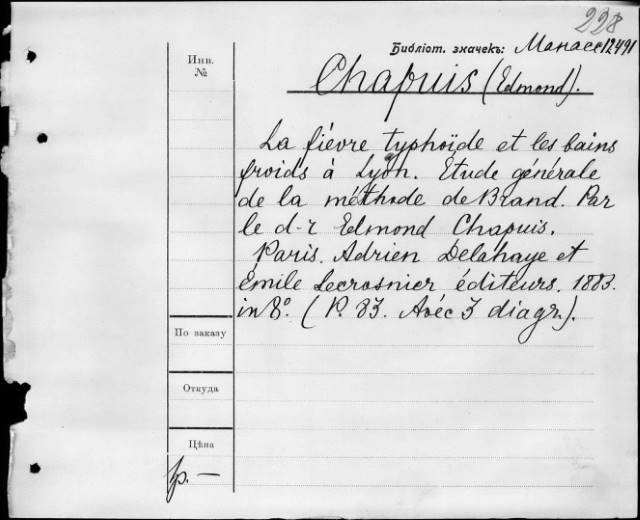 228
Библіот. значекъ: Манасс 12491
Инв.
№
Chapuis (Edmond).
La fiévre typhoïde et les bains
froids à Lyon. Etude générale
de la méthode de Brand. Par
le d-r Edmond Chapuis.
Paris. Adrien Delahaye et
Emile Lecrosnier éditeurs. 1883.
in 8°. (P. 83. Avéc 3 diagr.).
По заказу
Откуда
Цѣна
р. —